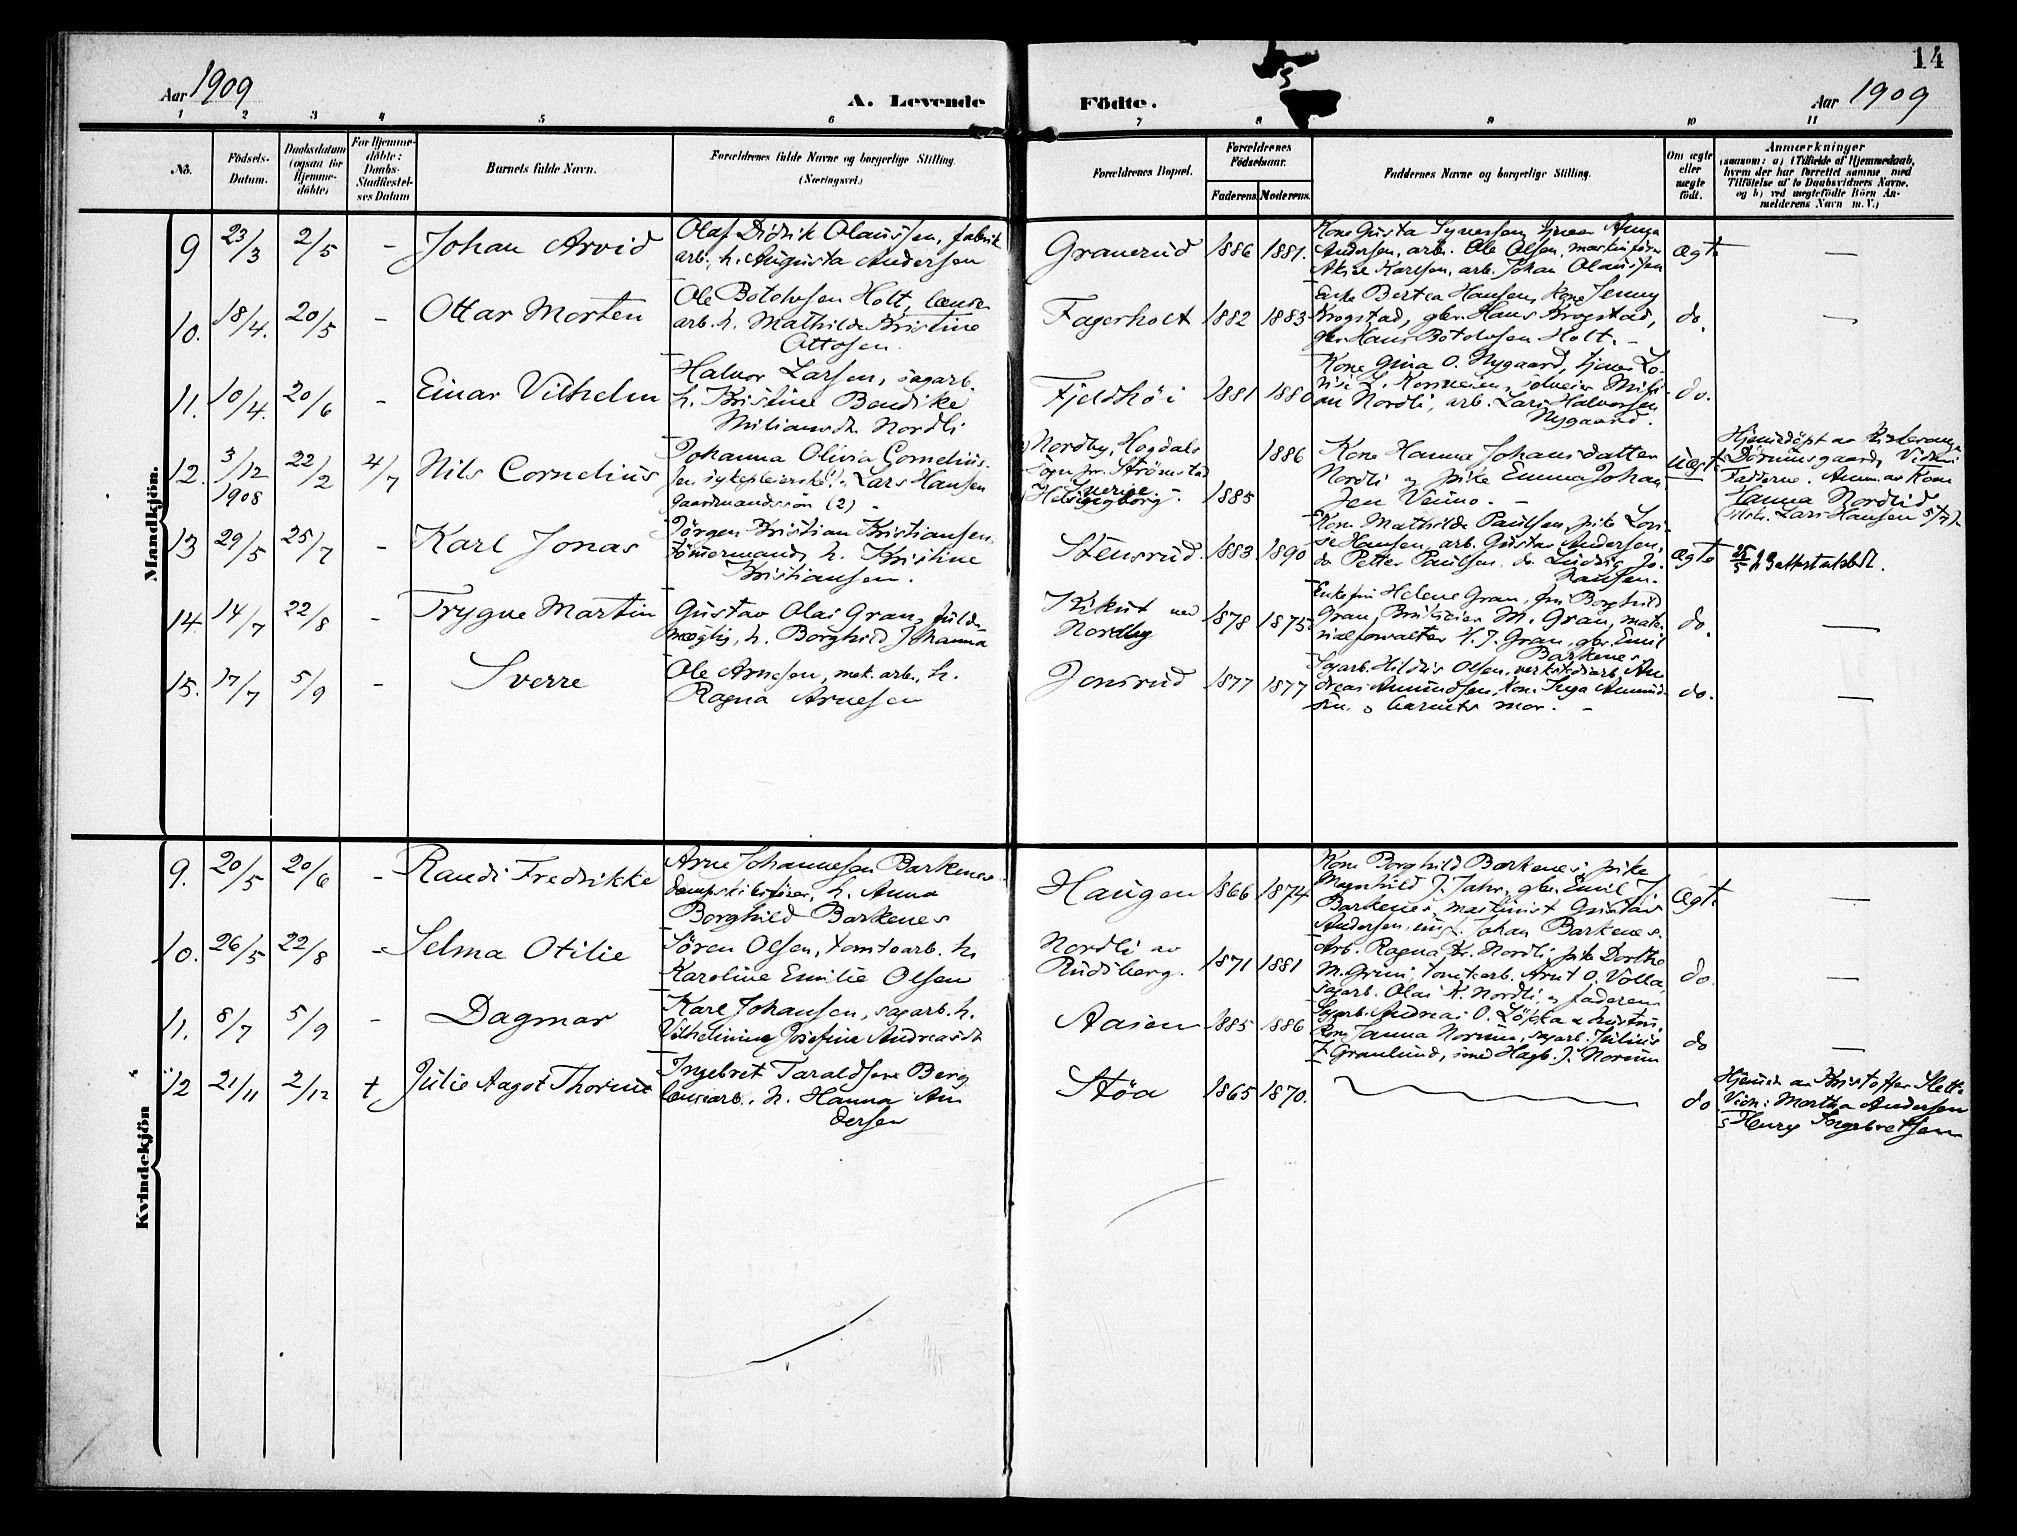 14
Aar 1909
A. Levende Födte.
Aar 1909
1 2 3 4 5 6 7 8 9 10 11
No.
Födsels-
Datum.
Daabsdatum
(ogsaa for
Hjemme-
döbte)
For Hjemme-
döbte:
Daabs-
Stadfæstel-
ses Datum
Barnets fulde Navn.
Forældrenes fulde Navne og borgerlige Stilling.
(Næringsvei.)
Forældrenes Bopæl.
Forældrenes
Födselsaar.
Faderens. Moderens.
Faddernes Navne og borgerlige Stilling.
Om ægte
eller
uægte
födt.
Anmærkninger
(saasom: a) i Tilfælde af Hjemmedaab,
hvem der har forrettet samme, med
Tilföielse af to Daabsvidners Navne,
og b) ved uægtefödte Börn An-
melderens Navn m. V.)
Mandkjön.
9 23/3 2/5 - Johan Arvid
Olaf Didrik Olaussen, fabrik
arb., h. Augusta Andersen
Granerud 1886 1881.
Andersen, arb. Ole Olsen, maskinförer
Karlsen, arb. Johan Olaussen
ægte —
10. 18/4. 20/5 - Ottar Morten
Ole Botolvsen Holt, lænse
arb. h. Mathilde Kristine
Ottosen.
Fagerholt 1882 1883
Enke Hansen, Kone Jenny
Krogstad, gbr. Hans Krogstad,
gbr. Hans Botolvsen Holt. -
do. —
11. 10/4. 20/6 - Einar Vilhelm
Halvor Larsen, sagarb.
h. Kristine Bendike
Nordli
Fjeldhöi 1881 1880
Kone Gina O. Nygaard,
Nordli, arb. Lars Halvorsen
Nygaard.
do.
12. 3/12 1908 22/2 4/7 Nils Cornelius
Johanna Olivia Cornelius-
sen, sykepleierske(1). Lars Hansen
gaardmandssön (2) -
Nordby, Hogdals
Sogn pr. Strömstad
Sverige
Helsingborg. -
1885 1886
Kone Hanna Johansdatter
Nordli og pike Emma Johan
sen -
uægte
Hjemdöpt av
Faddere. Anm. av Kone
Hanna Nordlid
Lars Hansen 5/7).
13 29/5 25/7 - Karl Jonas
Jörgen Kristian Kristiansen,
tömmermand, h. Kristine
Kristiansen.
Stensrud. 1883. 1890
Kone Mathilde Paulsen, pike Lovi-
se Hansen, arb. Gustav Andersen,
do Petter Paulsen, do. Ludvig Jo-
hansen.
ægte
14. 14/7 22/8 - Trygve Martin
Gustav Olai Gran, fuld-
mægtig, h. Borghild Johanna
Kikut ved
Nordby
1878 1875
Enkefru Helene Gran, fru Borghild
Gran, M. Gran, mate-
rialforvalter H. J. Gran, gbr. Emil
Barkenes
do. —
15. 17/7 5/9 - Sverre
Ole Arnesen, mek. arb., h.
Ragna Arnesen
Jonsrud 1877 1877
Sagarb. Hildus Olsen, verkstedsarb. An-
dreas Amundsen, Kone Inga Amund-
sen. o barnets mor. -
do. —
Kvindekjön
9. 20/5 20/6 - Randi Fredrikke
Arne Johannesen Barkenes
dampskibsförer, h. Anna
Borghild Barkenes
Haugen 1866 1874
Kone Borghild Barkenes, pike
Magnhild J. Jahr, gbr. Emil J.
Barkenes, maskinist Gustav
Andersen, ung. Johan Barkenes.
ægte —
10. 26/5 22/8 - Selma Otilie
Sören Olsen, tomtearb. h.
Karoline Emilie Olsen
Nordli av
Rudsberg.
1871 1881
Arb. Ragna Kr. Nordli, pike Dorthe
M. Gruni, tomtearb. Arnt O. Volla,
sagarb. Olai K. Nordli, og faderen
do. —
11. 8/7 5/9 - Dagmar
Karl Johansen, sagarb. h.
Vilhelmine Josefine Andreasdt
Aasen 1885 1886
Sagarb. Andreas O. Lökka & hustru,
Kone Janna Norum, sagarb. Julius
F. Granlund, smed Hagb. J. Norum
do —
12 21/11 2/12 + Julie Aagot Thorine
Ingebret Taraldsen Berg
lænsearb., h. Hanna An
dersen
Stöa 1865 1870.
do
Hjemd. av Kristoffer Slett.
Vidn: Martha Andersen
& Henry Ingebretsen